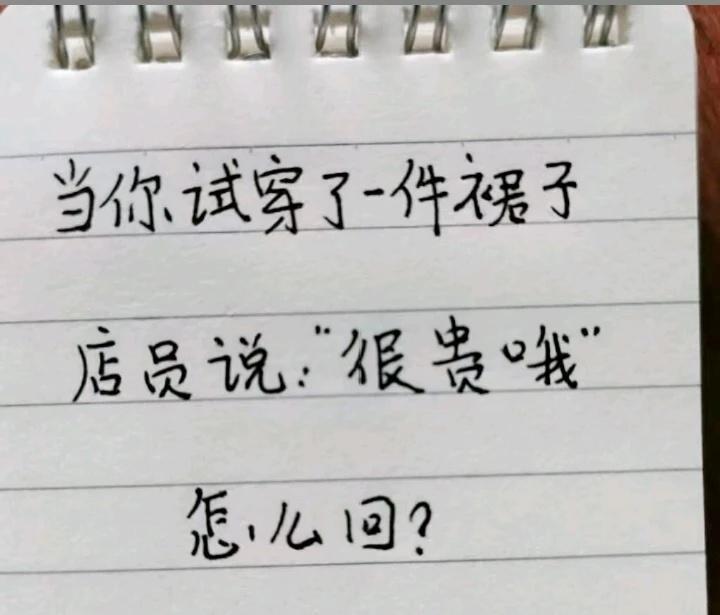 当你试穿了一件裙子
店员说:"很贵哦"
怎么回?